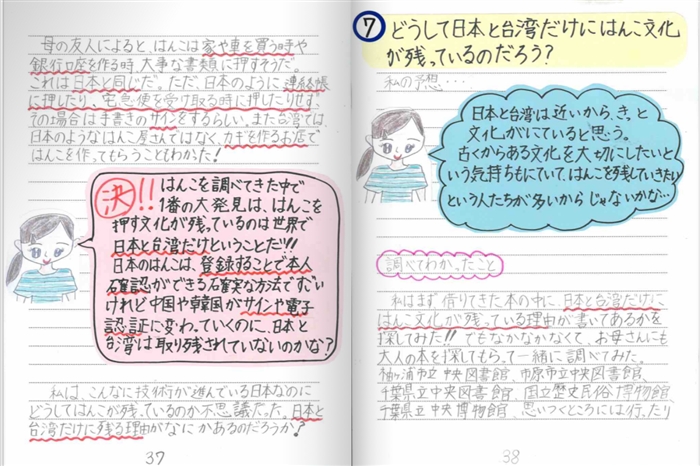 母の友人によると、はんこは家や車を買う時や
銀行口座を作る時、大事な書類に押すそうだ。
これは日本と同じだ。ただ、日本のように連絡帳
に押したり、宅急便を受け取る時に押したりせず、
その場合は手書きのサインをするらしい。また台湾では、
日本のようなはんこ屋さんではなく、カギを作るお店で
はんこを作ってもらうこともわかった!
決!!はんこを調べてきた中で
1番の大発見は、はんこを
押す文化が残っているのは世界で
日本と台湾だけということだ!!
日本のはんこは、登録することで本人
確認ができる確実な方法ですごい
けれど中国や韓国がサインや電子
認証に変わっていくのに、日本と
台湾は取り残されていないのかな?
私は、こんなに技術が進んでいる日本なのに
どうしてはんこが残っているのか不思議だった。日本と
台湾だけに残る理由がなにかあるのだろうか?
37
⑦どうして日本と台湾だけにはんこ文化
が残っているのだろう?
私の予想…
日本と台湾は近いから、きっと
文化がにていると思う。
古くからある文化を大切にしたいと
いう気持ちもにていて、はんこを残していきたい
という人たちが多いからじゃないかな…
調べてわかったこと
私はまず借りてきた本の中に、日本と台湾だけに
はんこ文化が残っている理由が書いてあるかを
探してみた!!でもなかなかなくて、お母さんにも
大人の本を探してもらって一緒に調べてみた。
袖ヶ浦市立中央図書館、市原市立中央図書館、
千葉県立中央図書館、国立歴史民俗博物館、
千葉県立中央博物館、思いつくところには行ったり
38